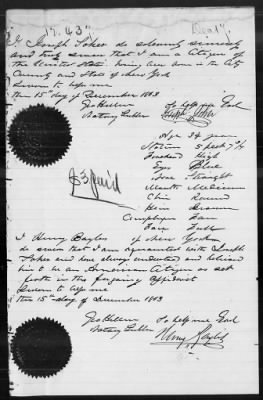 I Joseph do solemnly sincerely
and truly swear that I am a Citizen of
the United States being born in the City
County and State of New York
Sworn to before me
this 15th day of December 1863
So help me God
Notary Public
Age 34 years
Stature 5 feet 7 1/2
Forehead High
Eyes Blue
Nose Straight
Mouth Medium
Chin Round
Hair Brown
Complexion Fair
Face Full
I Henry of New York
do swear that I am acquainted with Joseph
and have always understood and believe
him to be an American Citizen as set
forth in the foregoing Affidavit
Sworn to before me
this 15th day of December 1863
So help me God
Notary Public